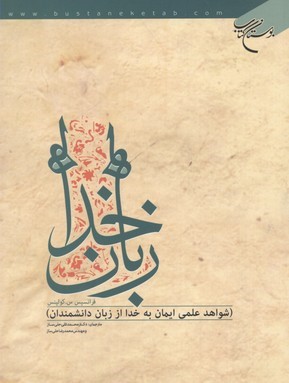 www.bustaneketab.com
بوستان کتاب
زبان خدا
فرانسیس س. کولینس
(شواهد علمی ایمان به خدا از زبان دانشمندان)
مترجمان: